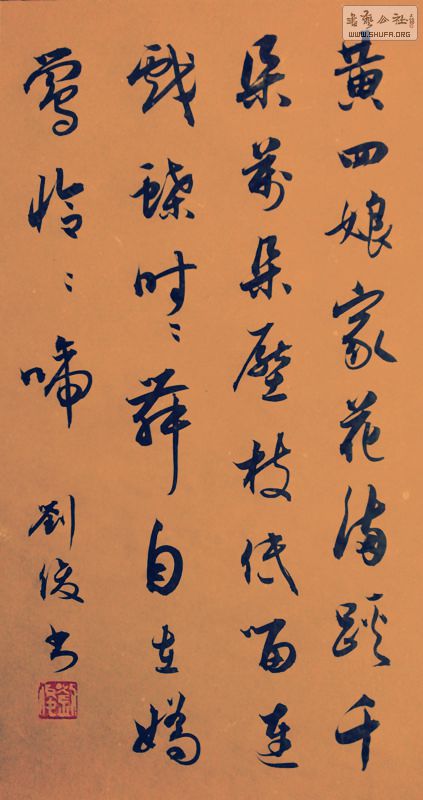 黄四娘家花满蹊千
朵万朵压枝低留连
戏蝶时〻舞自在娇
莺恰〻啼
劉俊书
劉俊
书艺公社
WWW.SHUFA.ORG